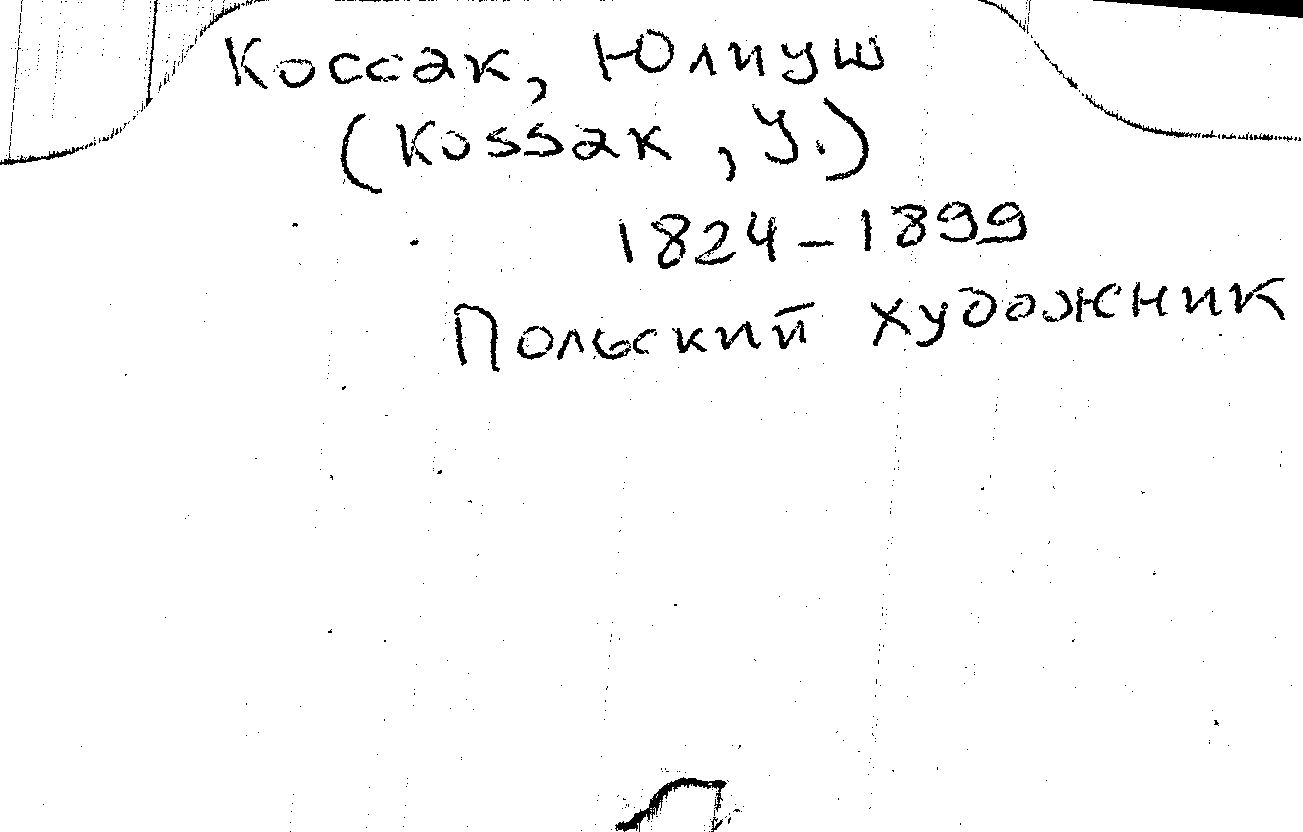 Коссак, Юлиуш
(Kossak, У.)
1824-1899
Польский художник